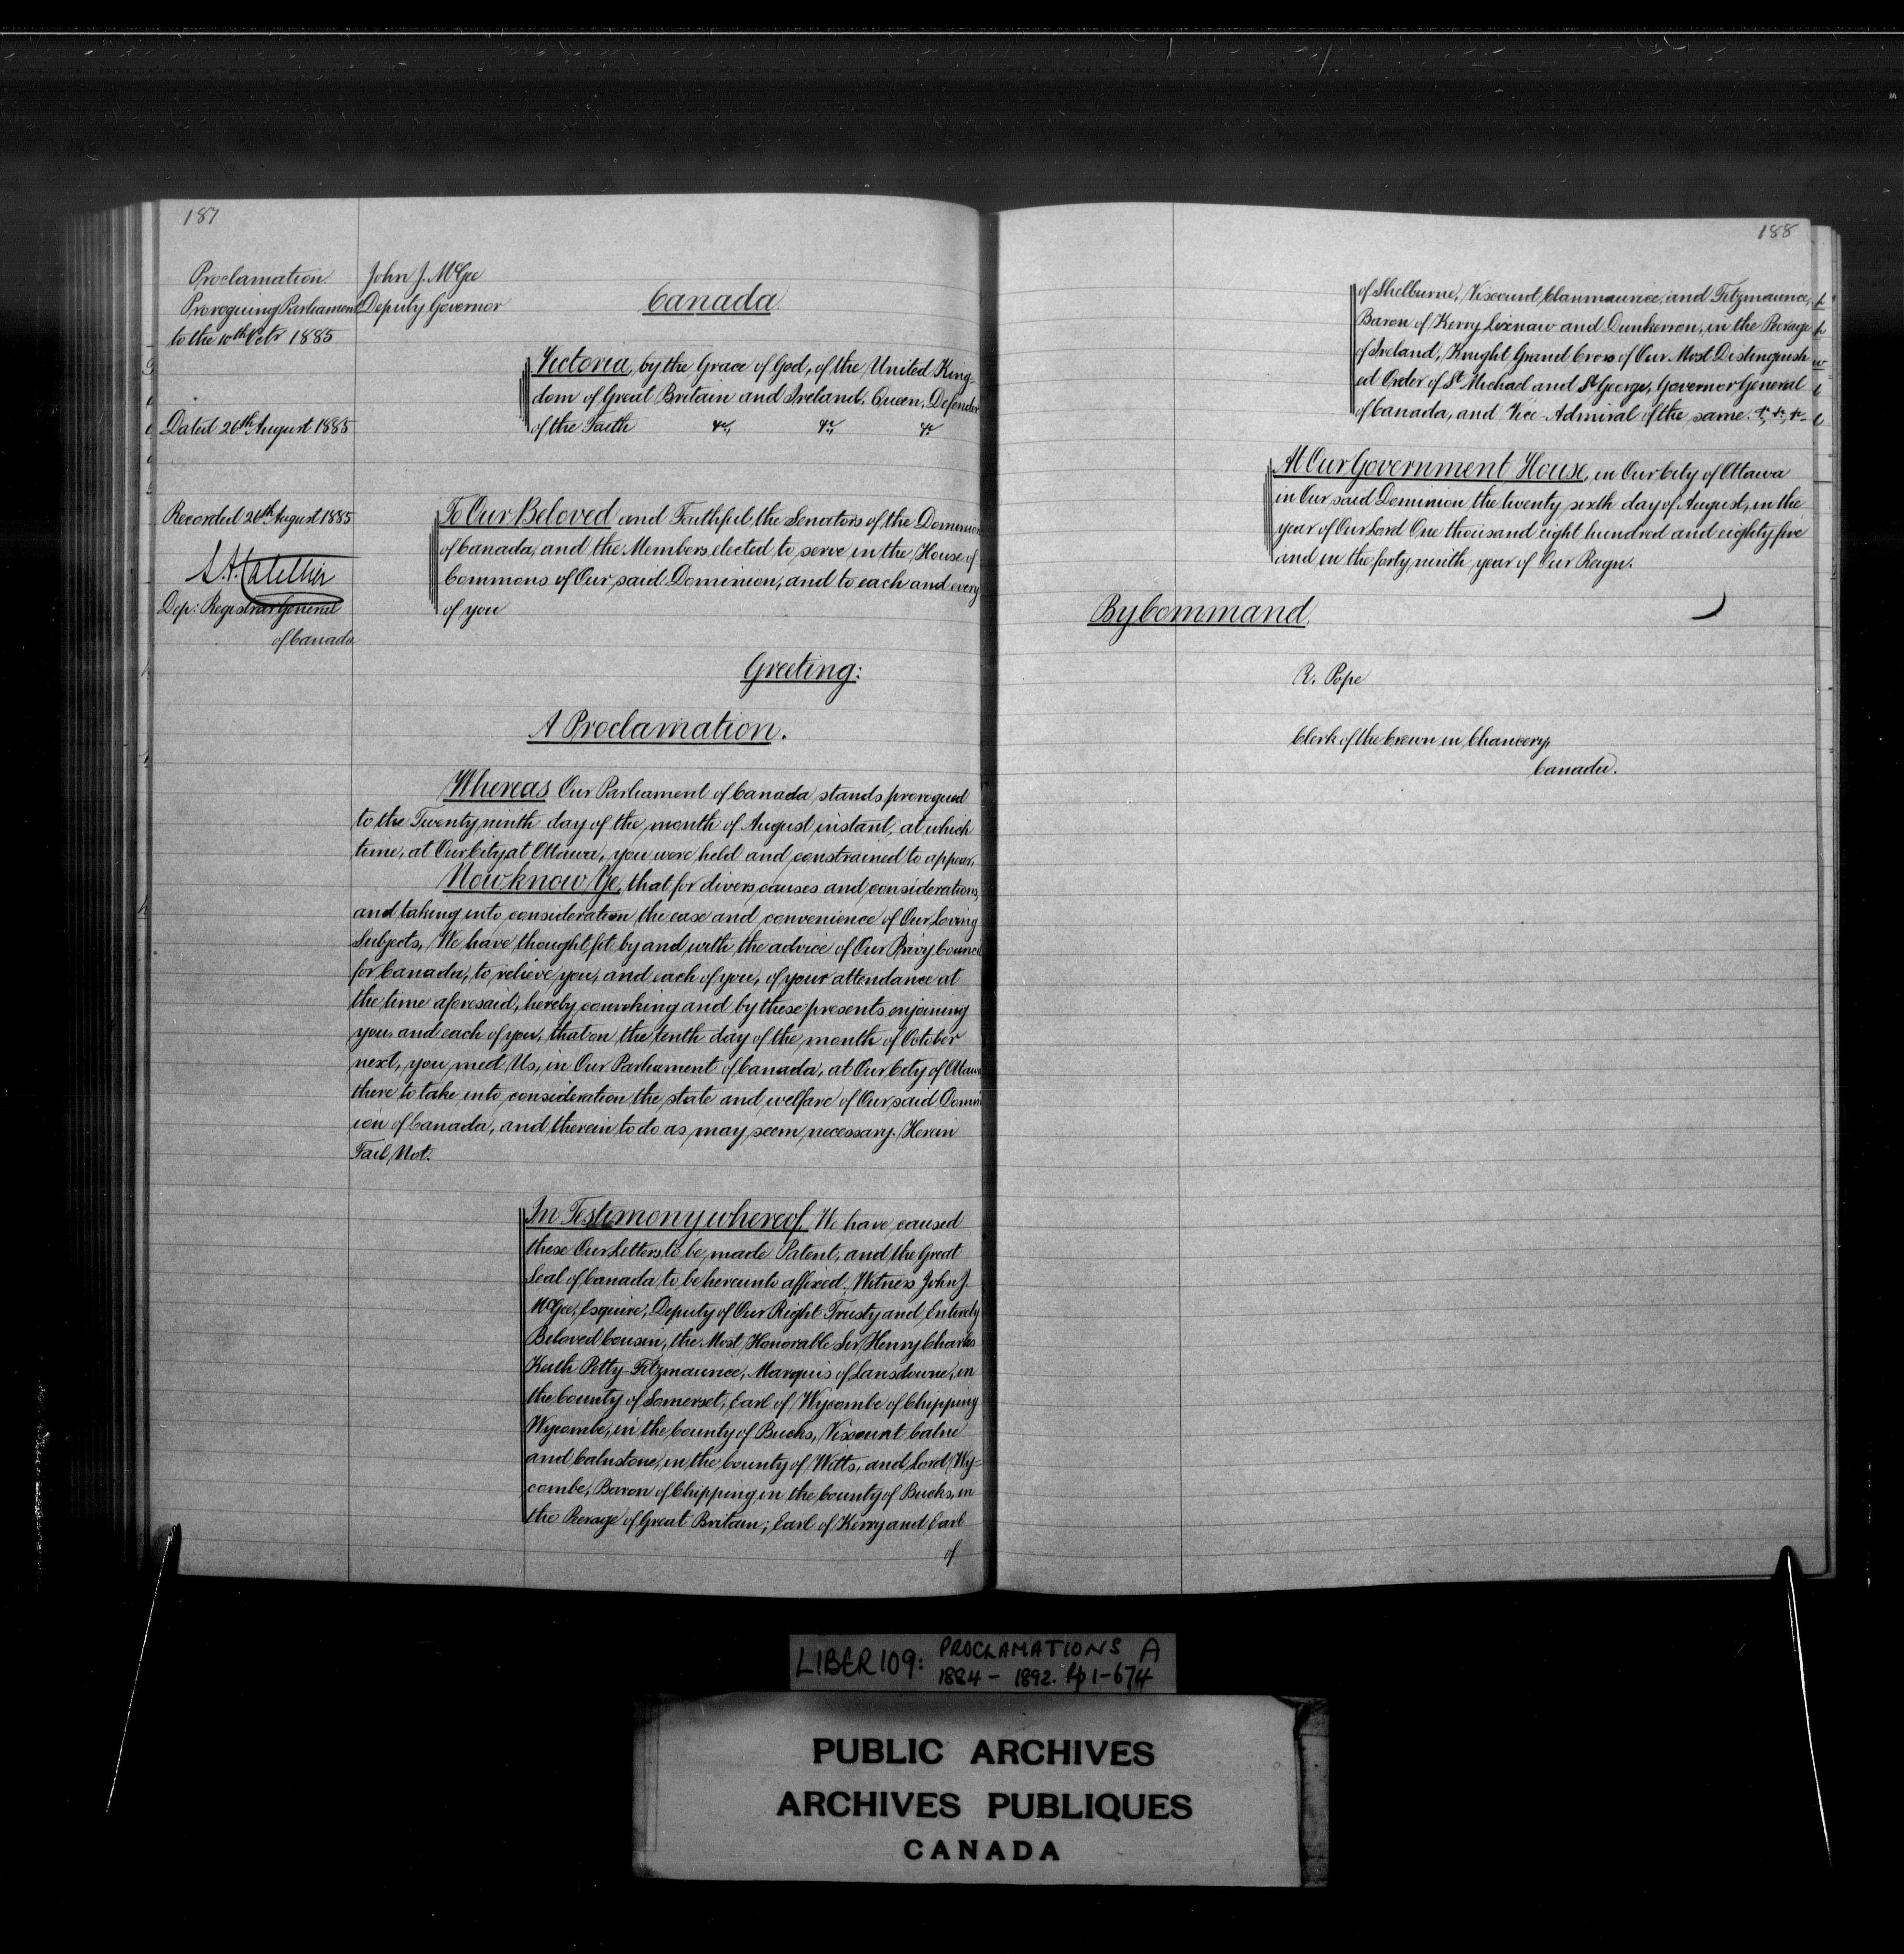 187
Proclamation
Proroguing Parliament
to the 10th Octr 1885
Dated 26th August 1885
Recorded 26th August 1885
Dep: Registrar General
of Canada
John J. McGee
Deputy Governor
Canada
Victoria, by the Grace of God, of the United King-
dom of Great Britain and Ireland, Queen, Defender
of the Faith &c., &c., &c
To Our Beloved and Faithful the Senators of the Dominion
of Canada, and the Members elected to serve in the House of
Commons of Our said Dominion, and to each and every
of you
Greeting:
A Proclamation.
Whereas Our Parliament of Canada stands prorogued
to the Twenty ninth day of the month of August instant, at which
time, at Our City at Ottawa, you were held and constrained to appear,
Now know Ye, that for divers causes and considerations,
and taking into consideration the ease and convenience of Our Loving
Subjects, We have thought fit by and with the advice of Our Privy Council
for Canada, to relieve you, and each of you, of your attendance at
the time aforesaid, hereby convoking and by these presents enjoining
you and each of you, that on the tenth day of the month of October
next, you meet Us, in Our Parliament of Canada, at Our City of Ottawa
there to take into consideration the state and welfare of Our said Domin
ion of Canada, and therein to do as may seem necessary. Herein
Fail Not.
In Testimony whereof, We have caused
these Our Letters to be made Patent, and the Great
Seal of Canada to be hereunto affixed. Witness John J.
McGee, Esquire, Deputy of Our Right Trusty and Entirely
Beloved Cousin, the Most Honorable Sir Henry Charles
Keith Petty-Fitzmaurice, Marquis of Lansdowne, in
the County of Somerset, Earl of Wycombe of Chipping
Wycombe, in the County of Bucks, Viscount Calne
and Calnstone, in the County of Wilts, and Lord Wy-
combe, Baron of Chipping in the County of Bucks, in
the Peerage of Great Britain; Earl of Kerry and Earl
of
188
of Shelburne, Viscount Clanmaurice, and Fitzmaurice,
Baron of Kerry Lixnaw and Dunkerron, in the Peerage
of Ireland, Knight Grand Cross of Our Most Distinguish
ed Order of St Michael and St George, Governor General
of Canada, and Vice Admiral of the same. &c, &c, &c
At Our Government House, in Our City of Ottawa
in Our said Dominion the twenty sixth day of August, in the
year of Our Lord One thousand eight hundred and eighty five
and in the forty ninth year of Our Reign.
By Command,
R. Pope
Clerk of the Crown in Chancery,
Canada.
LIBER 109: PROCLAMATIONS A
1884 - 1892. Pp 1-674
PUBLIC ARCHIVES
ARCHIVES PUBLIQUES
CANADA